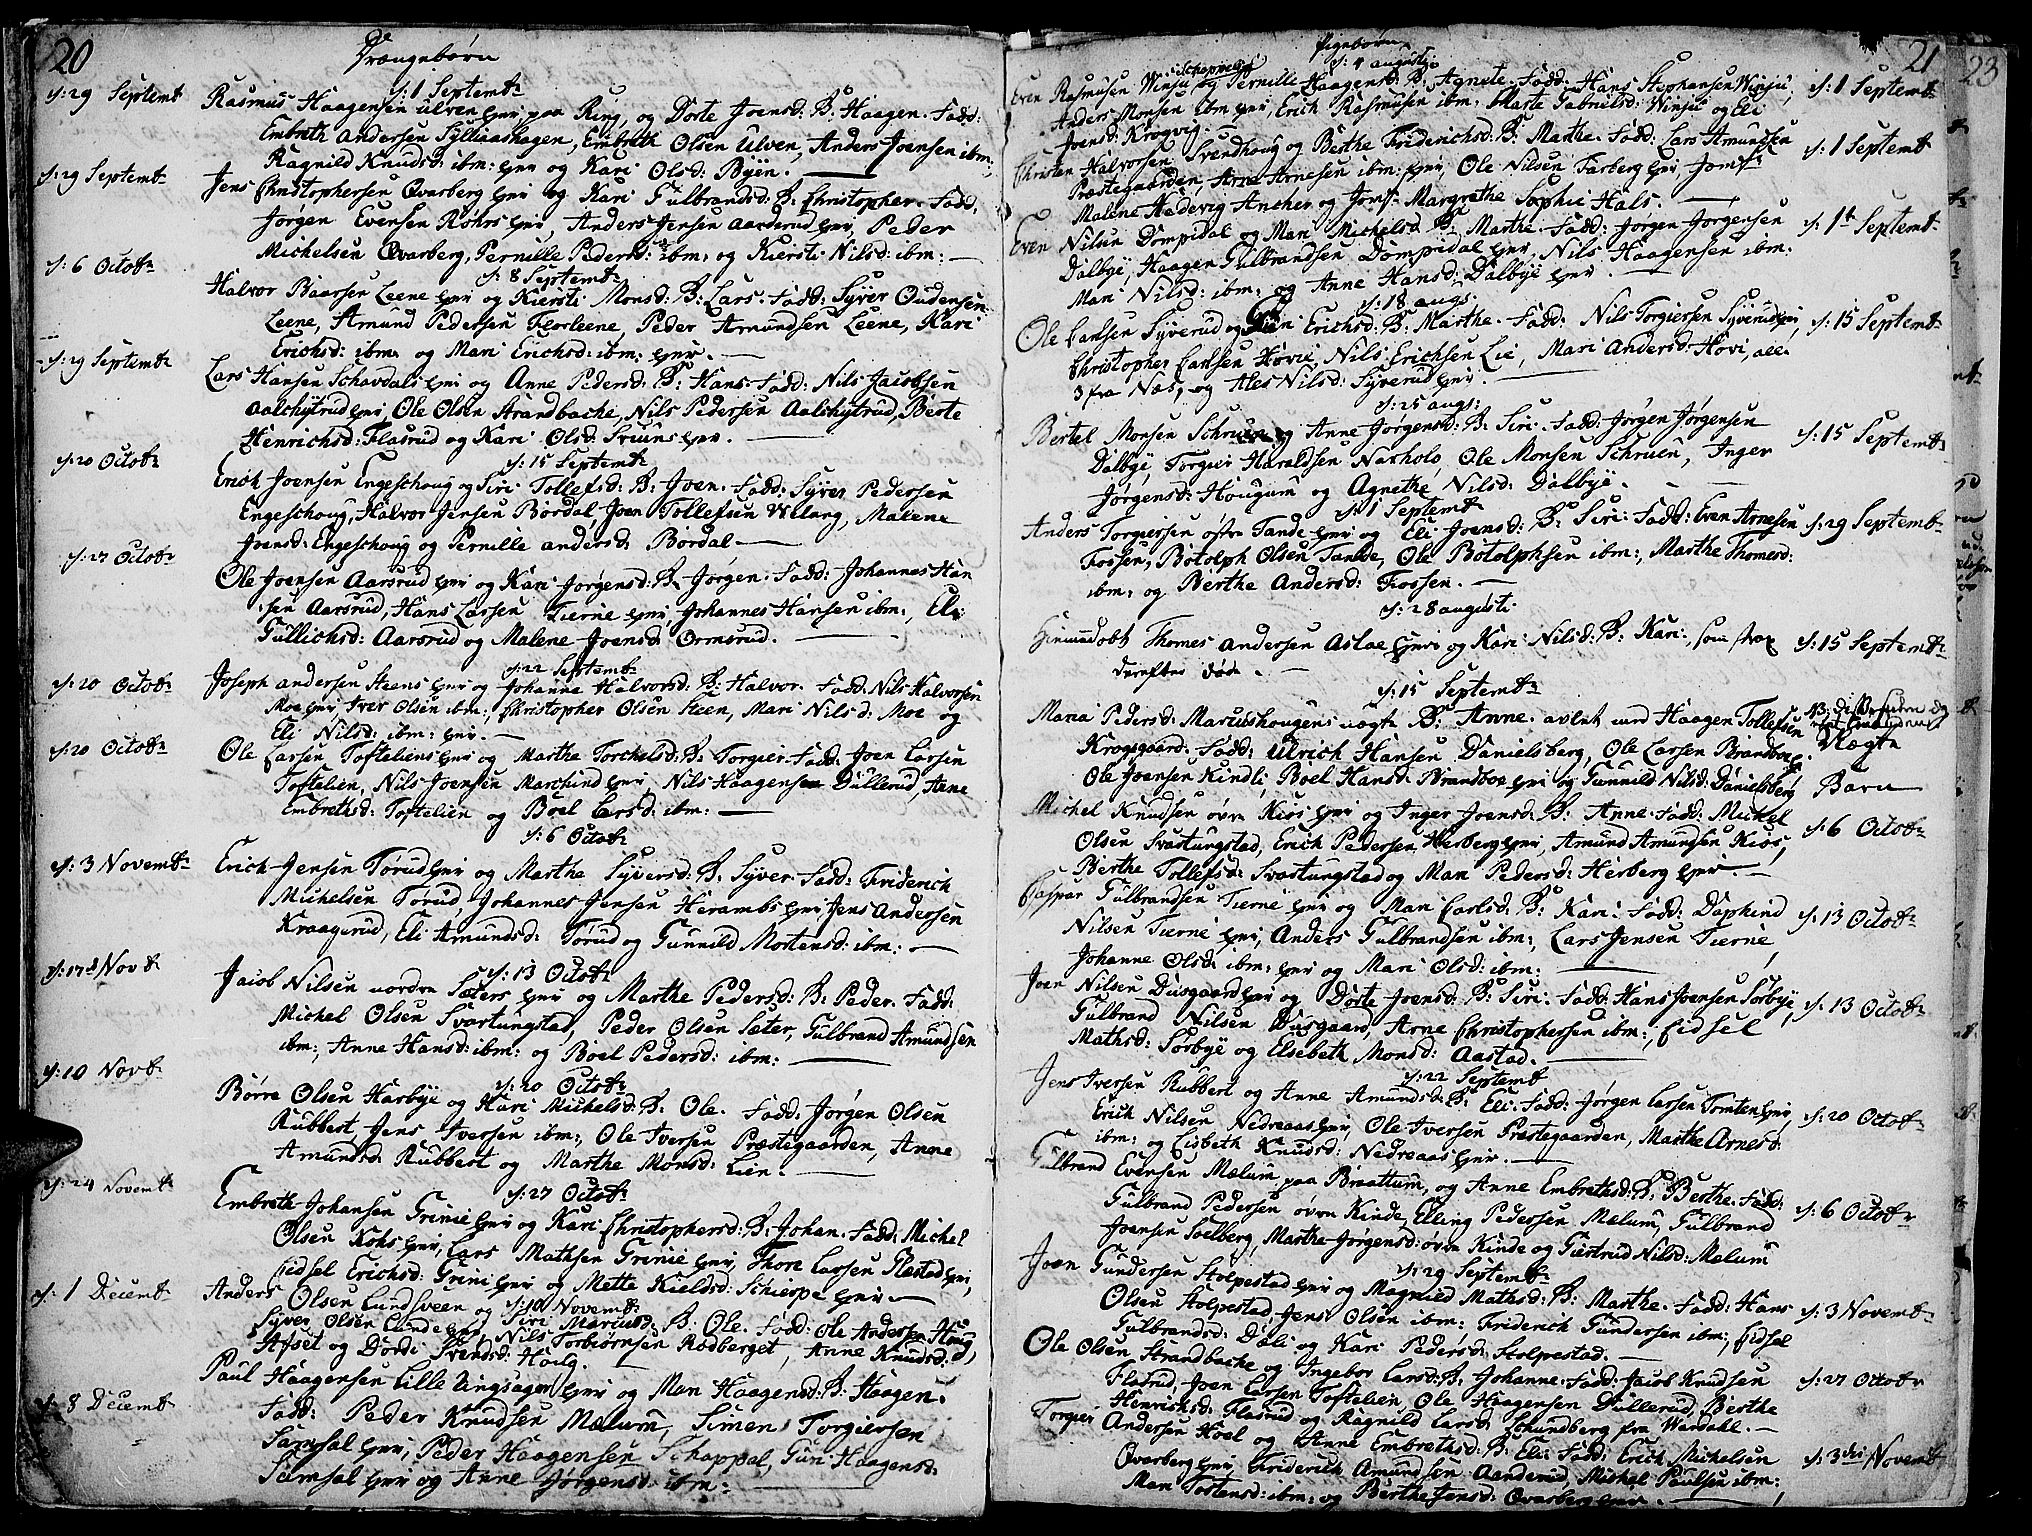 20
Drængebørn
d: 1 Septembr
d: 29 Septemb Rasmus Haagensen Ulven hmr paa Ring, og Dorte Joensd: B: Haagen. Fadd:
Embreth Andersen Sylliaashagen, Embreth Olsen Ulven, Anders Joensen ibm:
Ragnild Knudsd: ibm: hmr og Kari Olsd: Byen.
d: 29 Septembr Jens Christophersen Qvarberg hmr og Kari Gulbrandsd: B: Christopher. Fadd:
Jørgen Evensen Røhrs hmr, Anders Jensen Aanderud hmr, Peder
Michelsen Qvarberg, Pernille Pedersd: ibm: og Kiersti Nilsd: ibm:
d: 8 Septembr
d: 6 Octobr Halvor Baarsen Leene hmr og Kiersti Monsd: B: Lars. Fadd: Syver Oudensen
Leene, Amund Pedersen Florleene, Peder Amundsen Leene, Kari
Erichsd: ibm: og Mari Erichsd: ibm: hmr.
d: 29 Septembr Lars Hansen Schavdals hmr og Anne Pedersd: B: Hans. Fadd: Nils Jacobsen
Aalchytrud hmr, Ole Olsen Strandbache, Nils Pedersen Aalchytrud, Berte
Henrichsd: Flasrud og Kari Olsd: Sruens hmr.
d: 15 Septembr
d: 20 Octobr Erich Joensen Engeschoug og Siri Tollefsd: B: Joen. Fadd: Syver Pedersen
Engeschoug, Halvor Jensen Bordal, Joen Tollefsen Welang, Malene
Joensd: Engeschoug og Pernille Andersd: Bordal
d: 27 Octobr Ole Joensen Aarsrud hmr og Kari Jørgensd: B: Jørgen. Fadd: Johannes Han
sen Aarsrud, Hans Larsen Tierne hmr, Johannes Hansen ibm:, Eli
Gullichsd: Aarsrud og Malene Joensd: Ormsrud.
d: 22 Septembr
d: 20 Octobr Joseph Andersen Steens hmr og Johanne Halvorsd: B: Halvor. Fadd: Nils Halvorsen
Moe hmr, Iver Olsen ibm:, Christopher Olsen Steen, Mari Nilsd: Moe og
Eli Nilsd: ibm: hmr.
d: 20 Octobr Ole Larsen Toftliens hmr og Marthe Torchelsd: B: Torgier. Fadd: Joen Larsen
Toftelien, Nils Joensen Marchind hmr, Nils Haagensen Dullerud, Anne
Embrethsd: Toftelien og Boel Larsd: ibm:
d: 6 Octobr
d: 3 Novembr Erich Jensen Tørud hmr og Marthe Syversd: B: Syver. Fadd: Friderich
Michelsen Tørud, Johannes Jensen Herambs hmr, Jens Andersen
Kraagerud, Eli Amundsd: Tørud og Gunnild Mortensd: ibm:
d: 13 Octobr
d: 17d Novbr Jacob Nilsen nordre Sæters hmr og Marthe Pedersd: B: Peder. Fadd:
Michel Olsen Svartungstad, Peder Olsen Sæter, Gulbrand Amundsen
ibm:, Anne Hansd: ibm: og Boel Pedersd: ibm:
d: 20 Octobr
d: 10 Novbr Børre Olsen Harbye og Kari Michelsd: B: Ole. Fadd: Jørgen Olsen
Rubbert, Jens Iversen ibm:, Ole Iversen Præstegaarden, Anne
Amundsd: Rubbert og Marthe Monsd: Lien.
d: 27 Octobr
d: 24 Novembr Embreth Johansen Grinie hmr og Kari Christophersd: B: Johan. Fadd: Michel
Olsen Kohs hmr, Lars Mathsen Grinie hmr, Thore Larsen Flæstad hmr,
Eidsel Erichsd: Grini hmr og Mette Kieldsd: Schierpe hmr
d: 10 Novembr
d: 1 Decembr Anders Olsen Lundsveen og Siri Mariusd: B: Ole. Fadd: Ole Andersen Haug,
Syver Olsen Lunde hmr, Nils Torbiørnsen Rødberget, Anne Knudsd:
Afset og Dordi Svendsd: Hoilg.
d: 8 Decembr Paul Haagensen Lille Ringsagers hmr og Mari Haagensd: B: Haagen.
Fadd: Peder Knudsen Mælum, Simen Torgiersen
Samsal hmr, Peder Haagensen Schappel, Guri Haagensd:
Samsal hmr og Anne Jørgensd: ibm:
21
23
Pigebørn
d: 4 augusti
Even Rasmusen Winju og Pernille Haagensd: B: Agnete. Fadd: Hans Stephansen Winju, d: 1 Septembr
Schappelie
Anders Monsen ibm: hmr, Erich Rasmusen ibm: Marte Gabrielsd: Winju og Eli
Joensd: Krogvig.
Christen Halvorsen Svendhoug og Berthe Friderichsd: B: Marthe. Fadd: Lars Amundsen d: 1 Septembr
Præstegaarden, Arne Arnesen ibm: hmr, Ole Nilsen Farberg hmr, Jomfr
Malene Hedevig Ancher og Jomf: Margrethe Sophie Hals.
Even Nilsen Dompidal og Mari Michelsd: B: Marthe. Fadd: Jørgen Jørgensen d: 1t Septembr
Dalbye, Haagen Gulbrandsen Dompidal hmr, Nils Haagensen ibm:
Mari Nilsd: ibm: og Anne Hansd: Dalbye hmr.
d: 18 augs:
Ole Carlsen Syverud og Siri Erichsd: B: Marthe. Fadd: Nils Torgiersen Syverud hmr, d: 15 Septembr
Christopher Carlsen Hovie, Nils Erichsen Lie, Mari Andersd: Hovi, alle
3 fra Næs, og Ales Nilsd: Syverud hmr.
d: 25 augs:
Bertel Monsen Schruen og Anne Jørgensd: B: Siri. Fadd: Jørgen Jørgensen d: 15 Septembr
Dalbye, Torgier Haraldsen Naxholo, Ole Monsen Schruen, Inger
Jørgensd: Hougum og Agnethe Nilsd: Dalbye.
d: 1 Septembr
Anders Torgiersen øfre Tande hmr og Eli Joensd: B: Siri. Fadd: Even Arnesen d: 29 Septembr
Fossen, Botolph Olsen Tande, Ole Botolphsen ibm:, Marthe Thomesd:
ibm: og Berthe Andersd: Fossen.
d: 28 augusti
Hiemmedøbt Thomes Andersen Astae hmr og Kari Nilsd: B: Kari, som strax d: 15 Septembr
derefter døde.
d: 15 Septembr
Maria Pedersd: Maruushougens uægte B: Anne. avlet med Haagen Tollefsen
Krogsgaard. Fadd: Ulrich Hansen Danielsberg, Ole Larsen Brandboe hmr,
Uægte
Ole Joensen Kindli, Boel Hansd: Brandboe hmr og Gunnild Nilsd: Danielsberg Barn
Michel Knudsen øvre Kios hmr og Inger Joensd: B: Anne. Fadd: Michel d: 6 Octobr
Olsen Svartungstad, Erich Pedersen Herberg hmr, Amund Amundsen Kios,
Berthe Tollefsd: Svartungstad og Mari Pedersd: Herberg hmr
Casper Gulbrandsen Tierne hmr og Mari Carlsd: B: Kari. Fadd: Daphind d: 13 Octobr
Nilsen Tierne hmr, Anders Gulbrandsen ibm:, Lars Jensen Tierne,
Johanne Olsd: ibm: hmr og Mari Olsd: ibm:
Joen Nilsen Dusgaard hmr og Dorte Joensd: B: Siri. Fadd: Hans Joensen Sørbye, d: 13 Octobr
Gulbrand Nilsen Dusgaard, Arne Christophersen ibm:, Eidsel
Mathsd: Sørbye og Elsebeth Monsd: Aastad.
d: 22 Septemb
Jens Iversen Rubbert og Anne Amundsd: B: Eli. Fadd: Jørgen Larsen Tomten hmr, d: 20 Octobr
Erich Nilsen Nedreaas hmr, Ole Iversen Præstegaarden, Marthe Arnesd:
ibm: og Lisbeth Knudsd: Nedreaas hmr.
Gulbrand Evensen Mælum, paa Braattum, og Anne Embrethsd: B: Berthe. Fadd: d: 6 Octobr
Gulbrand Pedersen øvre Kinde, Elling Pedersen Mælum, Gulbrand
Joensen Soelberg, Marthe Jørgensd: øvre Kinde og Giertrud Nilsd: Mælum
d: 29 Septembr
Joen Gundersen Stolpestad hmr og Magnild Mathsd: B: Marthe. Fadd: Hans d: 3 Novembr
Olsen Stolpestad, Jens Olsen ibm: Friderich Gundersen ibm:, Eidsel
Gulbrandsd: Dæli og Kari Pedersd: Stolpestad.
Ole Olsen Strandbache og Ingebor Larsd: B: Johanne. Fadd: Jacob Knudsen d: 27 Octobr
Flasrud, Joen Larsen Toftelien, Ole Haagensen Dullerud, Berthe
Henrichsd: Flasrud og Ragnild Larsd: Schundberg fra Wardahl.
Torgier Andersen Hoel og Anne Embrethsd: B: Eli. Fadd: Erich Michelsen d: 3die Novembr
Qvarberg hmr, Friderich Amundsen Aanderud, Michel Paulsen ibm:,
Mari Tostensd: ibm: og Berthe Jensd: Qvarberg hmr.